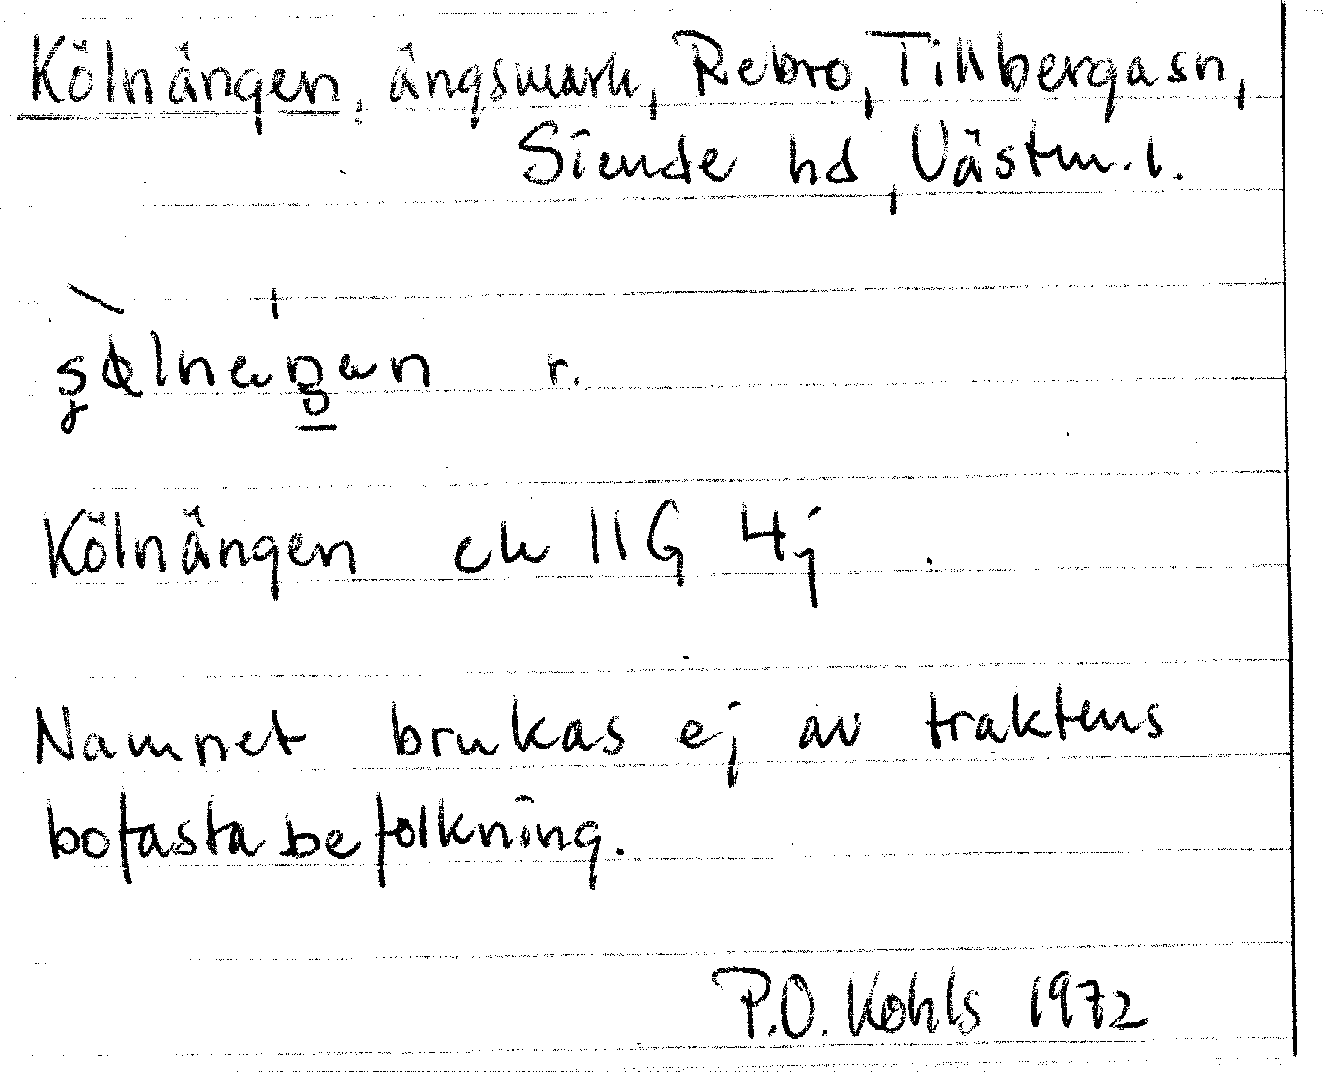 Kölnängen, ängsmark, Rebro, Tillberga sn,
Siende hd, Västm. l.
r.
Kölnängen ek 11G 4j
Namnet brukas ej av traktens
bofasta befolkning.
P.O. Kohls 1972